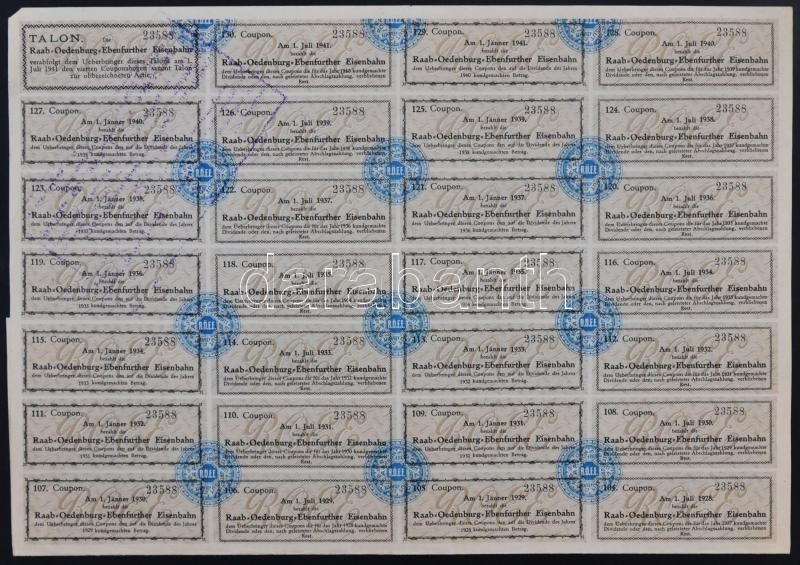 TALON.
23588
Raab-Oedenburg-Ebenfurther Eisenbahn
verabfolgt dem Ueberbringer dieses Talons am 1.
Juli 1941 den vierten Couponsbogen sammt Talon
zur obbezeichneten Actie.
130. Coupon. 23588
Am 1. Juli 1941.
bezahlt die
Raab-Oedenburg-Ebenfurther Eisenbahn
dem Ueberbringer dieses Coupons die für das Jahr 1940 kundgemachte
Dividende oder den, nach geleisteter Abschlagszahlung, verbliebenen
Rest.
129. Coupon. 23588
Am 1. Jänner 1941.
bezahlt die
Raab-Oedenburg-Ebenfurther Eisenbahn
dem Ueberbringer dieses Coupons den auf die Dividende des Jahres
1940 kundgemachten Betrag.
128. Coupon. 23588
Am 1. Juli 1940.
bezahlt die
Raab-Oedenburg-Ebenfurther Eisenbahn
dem Ueberbringer dieses Coupons die für das Jahr 1939 kundgemachte
Dividende oder den, nach geleisteter Abschlagszahlung, verbliebenen
Rest.
127. Coupon. 23588
Am 1. Jänner 1940.
bezahlt die
Raab-Oedenburg-Ebenfurther Eisenbahn
dem Ueberbringer dieses Coupons den auf die Dividende des Jahres
1939 kundgemachten Betrag.
126. Coupon. 23588
Am 1. Juli 1939.
bezahlt die
Raab-Oedenburg-Ebenfurther Eisenbahn
dem Ueberbringer dieses Coupons die für das Jahr 1938 kundgemachte
Dividende oder den, nach geleisteter Abschlagszahlung, verbliebenen
Rest.
125. Coupon. 23588
Am 1. Jänner 1939.
bezahlt die
Raab-Oedenburg-Ebenfurther Eisenbahn
dem Ueberbringer dieses Coupons den auf die Dividende des Jahres
1938 kundgemachten Betrag.
124. Coupon. 23588
Am 1. Juli 1938.
bezahlt die
Raab-Oedenburg-Ebenfurther Eisenbahn
dem Ueberbringer dieses Coupons die für das Jahr 1937 kundgemachte
Dividende oder den, nach geleisteter Abschlagszahlung, verbliebenen
Rest.
123. Coupon. 23588
Am 1. Jänner 1938.
bezahlt die
Raab-Oedenburg-Ebenfurther Eisenbahn
dem Ueberbringer dieses Coupons den auf die Dividende des Jahres
1937 kundgemachten Betrag.
122. Coupon. 23588
Am 1. Juli 1937.
bezahlt die
Raab-Oedenburg-Ebenfurther Eisenbahn
dem Ueberbringer dieses Coupons die für das Jahr 1936 kundgemachte
Dividende oder den, nach geleisteter Abschlagszahlung, verbliebenen
Rest.
121. Coupon. 23588
Am 1. Jänner 1937.
bezahlt die
Raab-Oedenburg-Ebenfurther Eisenbahn
dem Ueberbringer dieses Coupons den auf die Dividende des Jahres
1936 kundgemachten Betrag.
120. Coupon. 23588
Am 1. Juli 1936.
bezahlt die
Raab-Oedenburg-Ebenfurther Eisenbahn
dem Ueberbringer dieses Coupons die für das Jahr 1935 kundgemachte
Dividende oder den, nach geleisteter Abschlagszahlung, verbliebenen
Rest.
119. Coupon. 23588
Am 1. Jänner 1936.
bezahlt die
Raab-Oedenburg-Ebenfurther Eisenbahn
dem Ueberbringer dieses Coupons den auf die Dividende des Jahres
1935 kundgemachten Betrag.
118. Coupon. 23588
Am 1. Juli 1935.
bezahlt die
Raab-Oedenburg-Ebenfurther Eisenbahn
dem Ueberbringer dieses Coupons die für das Jahr 1934 kundgemachte
Dividende oder den, nach geleisteter Abschlagszahlung, verbliebenen
Rest.
117. Coupon. 23588
Am 1. Jänner 1935.
bezahlt die
Raab-Oedenburg-Ebenfurther Eisenbahn
dem Ueberbringer dieses Coupons den auf die Dividende des Jahres
1934 kundgemachten Betrag.
116. Coupon. 23588
Am 1. Juli 1934.
bezahlt die
Raab-Oedenburg-Ebenfurther Eisenbahn
dem Ueberbringer dieses Coupons die für das Jahr 1933 kundgemachte
Dividende oder den, nach geleisteter Abschlagszahlung, verbliebenen
Rest.
darabanth
115. Coupon. 23588
Am 1. Jänner 1934.
bezahlt die
Raab-Oedenburg-Ebenfurther Eisenbahn
dem Ueberbringer dieses Coupons den auf die Dividende des Jahres
1933 kundgemachten Betrag.
114. Coupon. 23588
Am 1. Juli 1933.
bezahlt die
Raab-Oedenburg-Ebenfurther Eisenbahn
dem Ueberbringer dieses Coupons die für das Jahr 1932 kundgemachte
Dividende oder den, nach geleisteter Abschlagszahlung, verbliebenen
Rest.
113. Coupon. 23588
Am 1. Jänner 1933.
bezahlt die
Raab-Oedenburg-Ebenfurther Eisenbahn
dem Ueberbringer dieses Coupons den auf die Dividende des Jahres
1932 kundgemachten Betrag.
112. Coupon. 23588
Am 1. Juli 1932.
bezahlt die
Raab-Oedenburg-Ebenfurther Eisenbahn
dem Ueberbringer dieses Coupons die für das Jahr 1931 kundgemachte
Dividende oder den, nach geleisteter Abschlagszahlung, verbliebenen
Rest.
111. Coupon. 23588
Am 1. Jänner 1932.
bezahlt die
Raab-Oedenburg-Ebenfurther Eisenbahn
dem Ueberbringer dieses Coupons den auf die Dividende des Jahres
1931 kundgemachten Betrag.
110. Coupon. 23588
Am 1. Juli 1931.
bezahlt die
Raab-Oedenburg-Ebenfurther Eisenbahn
dem Ueberbringer dieses Coupons die für das Jahr 1930 kundgemachte
Dividende oder den, nach geleisteter Abschlagszahlung, verbliebenen
Rest.
109. Coupon. 23588
Am 1. Jänner 1931.
bezahlt die
Raab-Oedenburg-Ebenfurther Eisenbahn
dem Ueberbringer dieses Coupons den auf die Dividende des Jahres
1930 kundgemachten Betrag.
108. Coupon. 23588
Am 1. Juli 1930.
bezahlt die
Raab-Oedenburg-Ebenfurther Eisenbahn
dem Ueberbringer dieses Coupons die für das Jahr 1929 kundgemachte
Dividende oder den, nach geleisteter Abschlagszahlung, verbliebenen
Rest.
107. Coupon. 23588
Am 1. Jänner 1930.
bezahlt die
Raab-Oedenburg-Ebenfurther Eisenbahn
dem Ueberbringer dieses Coupons den auf die Dividende des Jahres
1929 kundgemachten Betrag.
106. Coupon. 23588
Am 1. Juli 1929.
bezahlt die
Raab-Oedenburg-Ebenfurther Eisenbahn
dem Ueberbringer dieses Coupons die für das Jahr 1928 kundgemachte
Dividende oder den, nach geleisteter Abschlagszahlung, verbliebenen
Rest.
105. Coupon. 23588
Am 1. Jänner 1929.
bezahlt die
Raab-Oedenburg-Ebenfurther Eisenbahn
dem Ueberbringer dieses Coupons den auf die Dividende des Jahres
1928 kundgemachten Betrag.
104. Coupon. 23588
Am 1. Juli 1928.
bezahlt die
Raab-Oedenburg-Ebenfurther Eisenbahn
dem Ueberbringer dieses Coupons die für das Jahr 1927 kundgemachte
Dividende oder den, nach geleisteter Abschlagszahlung, verbliebenen
Rest.
R.Ö.E.E.
R.Ö.E.E.
R.Ö.E.E.
R.Ö.E.E.
R.Ö.E.E.
R.Ö.E.E.
R.Ö.E.E.
R.Ö.E.E.
R.Ö.E.E.